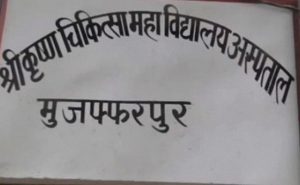 श्रीकृष्ण चिकित्सा महा विद्यालय अस्पताल
मुजफ्फरपुर